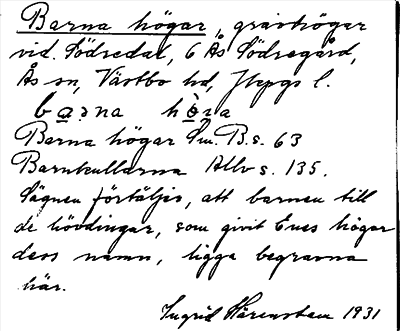 Barna högar, gravhögar
vid Södredal, 6 Ås Södregård,
Ås sn, Västbo hd, Jkpgs l.
barna höga
Barna högar Sm. B. s. 63
Barnkullarna Allv s. 135.
Sägnen förtäljer, att barnen till
de hövdingar, som givit Enes högar
dess namn, ligga begravna
här.
Ingrid Härenstam 1931